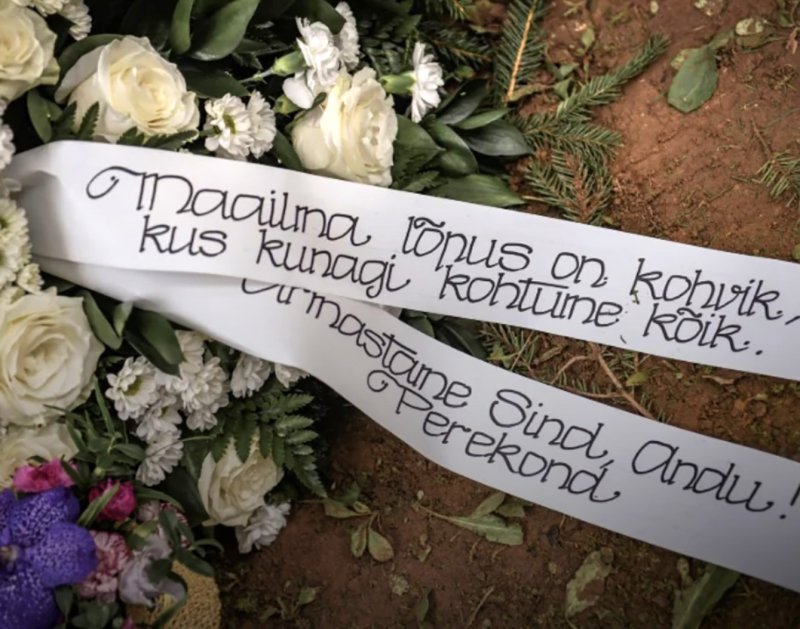 Maailma lõpus on kohvik,
kus kunagi kohtume kõik.
Armastame Sind, Andu!
Perekond